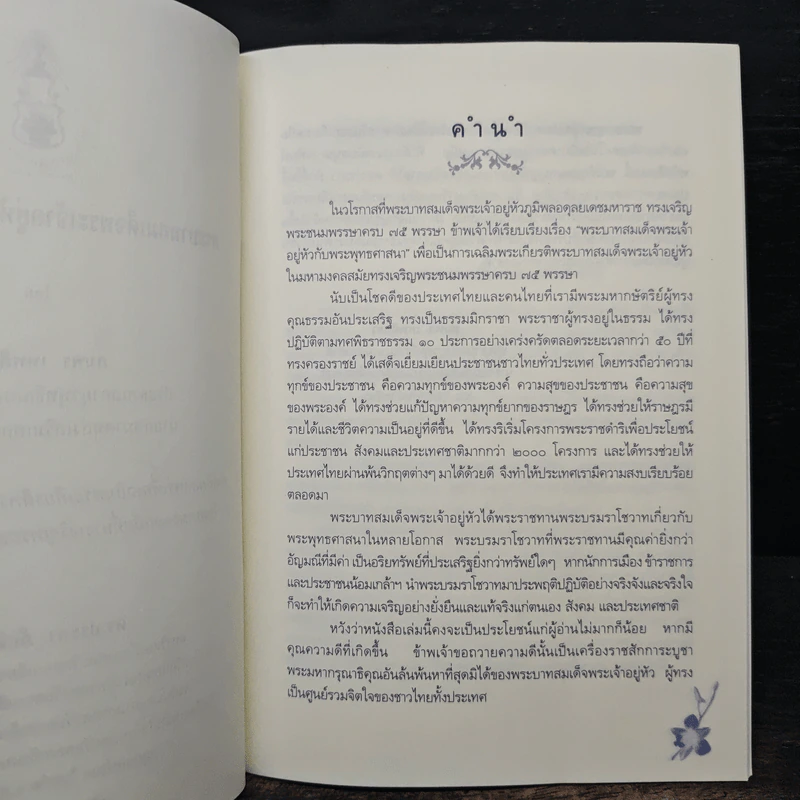 คำนำ
ในวโรกาสที่พระบาทสมเด็จพระเจ้าอยู่หัวภูมิพลอดุลยเดชมหาราช ทรงเจริญ
พระชนมพรรษาครบ ๗๕ พรรษา ข้าพเจ้าได้เรียบเรียงเรื่อง “พระบาทสมเด็จพระเจ้า
อยู่หัวกับพระพุทธศาสนา” เพื่อเป็นการเฉลิมพระเกียรติพระบาทสมเด็จพระเจ้าอยู่หัว
ในมหามงคลสมัยทรงเจริญพระชนมพรรษาครบ ๗๕ พรรษา
นับเป็นโชคดีของประเทศไทยและคนไทยที่เรามีพระมหากษัตริย์ผู้ทรง
คุณธรรมอันประเสริฐ ทรงเป็นธรรมมิกราชา พระราชาผู้ทรงอยู่ในธรรม ได้ทรง
ปฏิบัติตามทศพิธราชธรรม ๑๐ ประการอย่างเคร่งครัดตลอดระยะเวลากว่า ๕๐ ปีที่
ทรงครองราชย์ ได้เสด็จเยี่ยมเยียนประชาชนชาวไทยทั่วประเทศ โดยทรงถือว่าความ
ทุกข์ของประชาชน คือความทุกข์ของพระองค์ ความสุขของประชาชน คือความสุข
ของพระองค์ ได้ทรงช่วยแก้ปัญหาความทุกข์ยากของราษฎร ได้ทรงช่วยให้ราษฎรมี
รายได้และชีวิตความเป็นอยู่ที่ดีขึ้น ได้ทรงริเริ่มโครงการพระราชดำริเพื่อประโยชน์
แก่ประชาชน สังคมและประเทศชาติมากกว่า ๒๐๐๐ โครงการ และได้ทรงช่วยให้
ประเทศไทยผ่านพ้นวิกฤตต่างๆ มาได้ด้วยดี จึงทำให้ประเทศเรามีความสงบเรียบร้อย
ตลอดมา
พระบาทสมเด็จพระเจ้าอยู่หัวได้พระราชทานพระบรมราโชวาทเกี่ยวกับ
พระพุทธศาสนาในหลายโอกาส พระบรมราโชวาทที่พระราชทานมีคุณค่ายิ่งกว่า
อัญมณีที่มีค่า เป็นอริยทรัพย์ที่ประเสริฐยิ่งกว่าทรัพย์ใดๆ หากนักการเมือง ข้าราชการ
และประชาชนน้อมเกล้าฯ นำพระบรมราโชวาทมาประพฤติปฏิบัติอย่างจริงจังและจริงใจ
ก็จะทำให้เกิดความเจริญอย่างยั่งยืนและแท้จริงแก่ตนเอง สังคม และประเทศชาติ
หวังว่าหนังสือเล่มนี้คงจะเป็นประโยชน์แก่ผู้อ่านไม่มากก็น้อย หากมี
คุณความดีที่เกิดขึ้น ข้าพเจ้าขอถวายความดีนั้นเป็นเครื่องราชสักการะบูชา
พระมหากรุณาธิคุณอันล้นพ้นหาที่สุดมิได้ของพระบาทสมเด็จพระเจ้าอยู่หัว ผู้ทรง
เป็นศูนย์รวมจิตใจของชาวไทยทั้งประเทศ